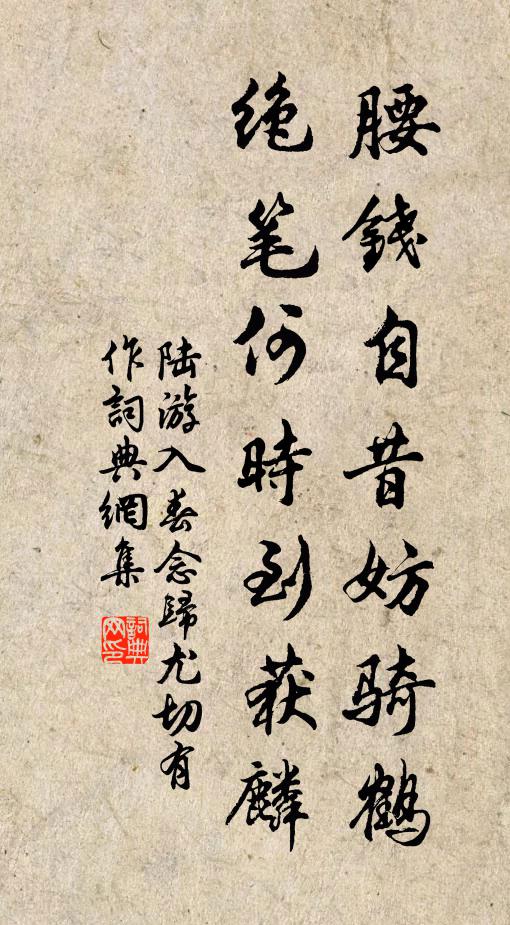 腰錢自昔妨骑鶴
绝笔何時到获麟
陆游入春念歸尤切有
作詞典網集
詞典网印